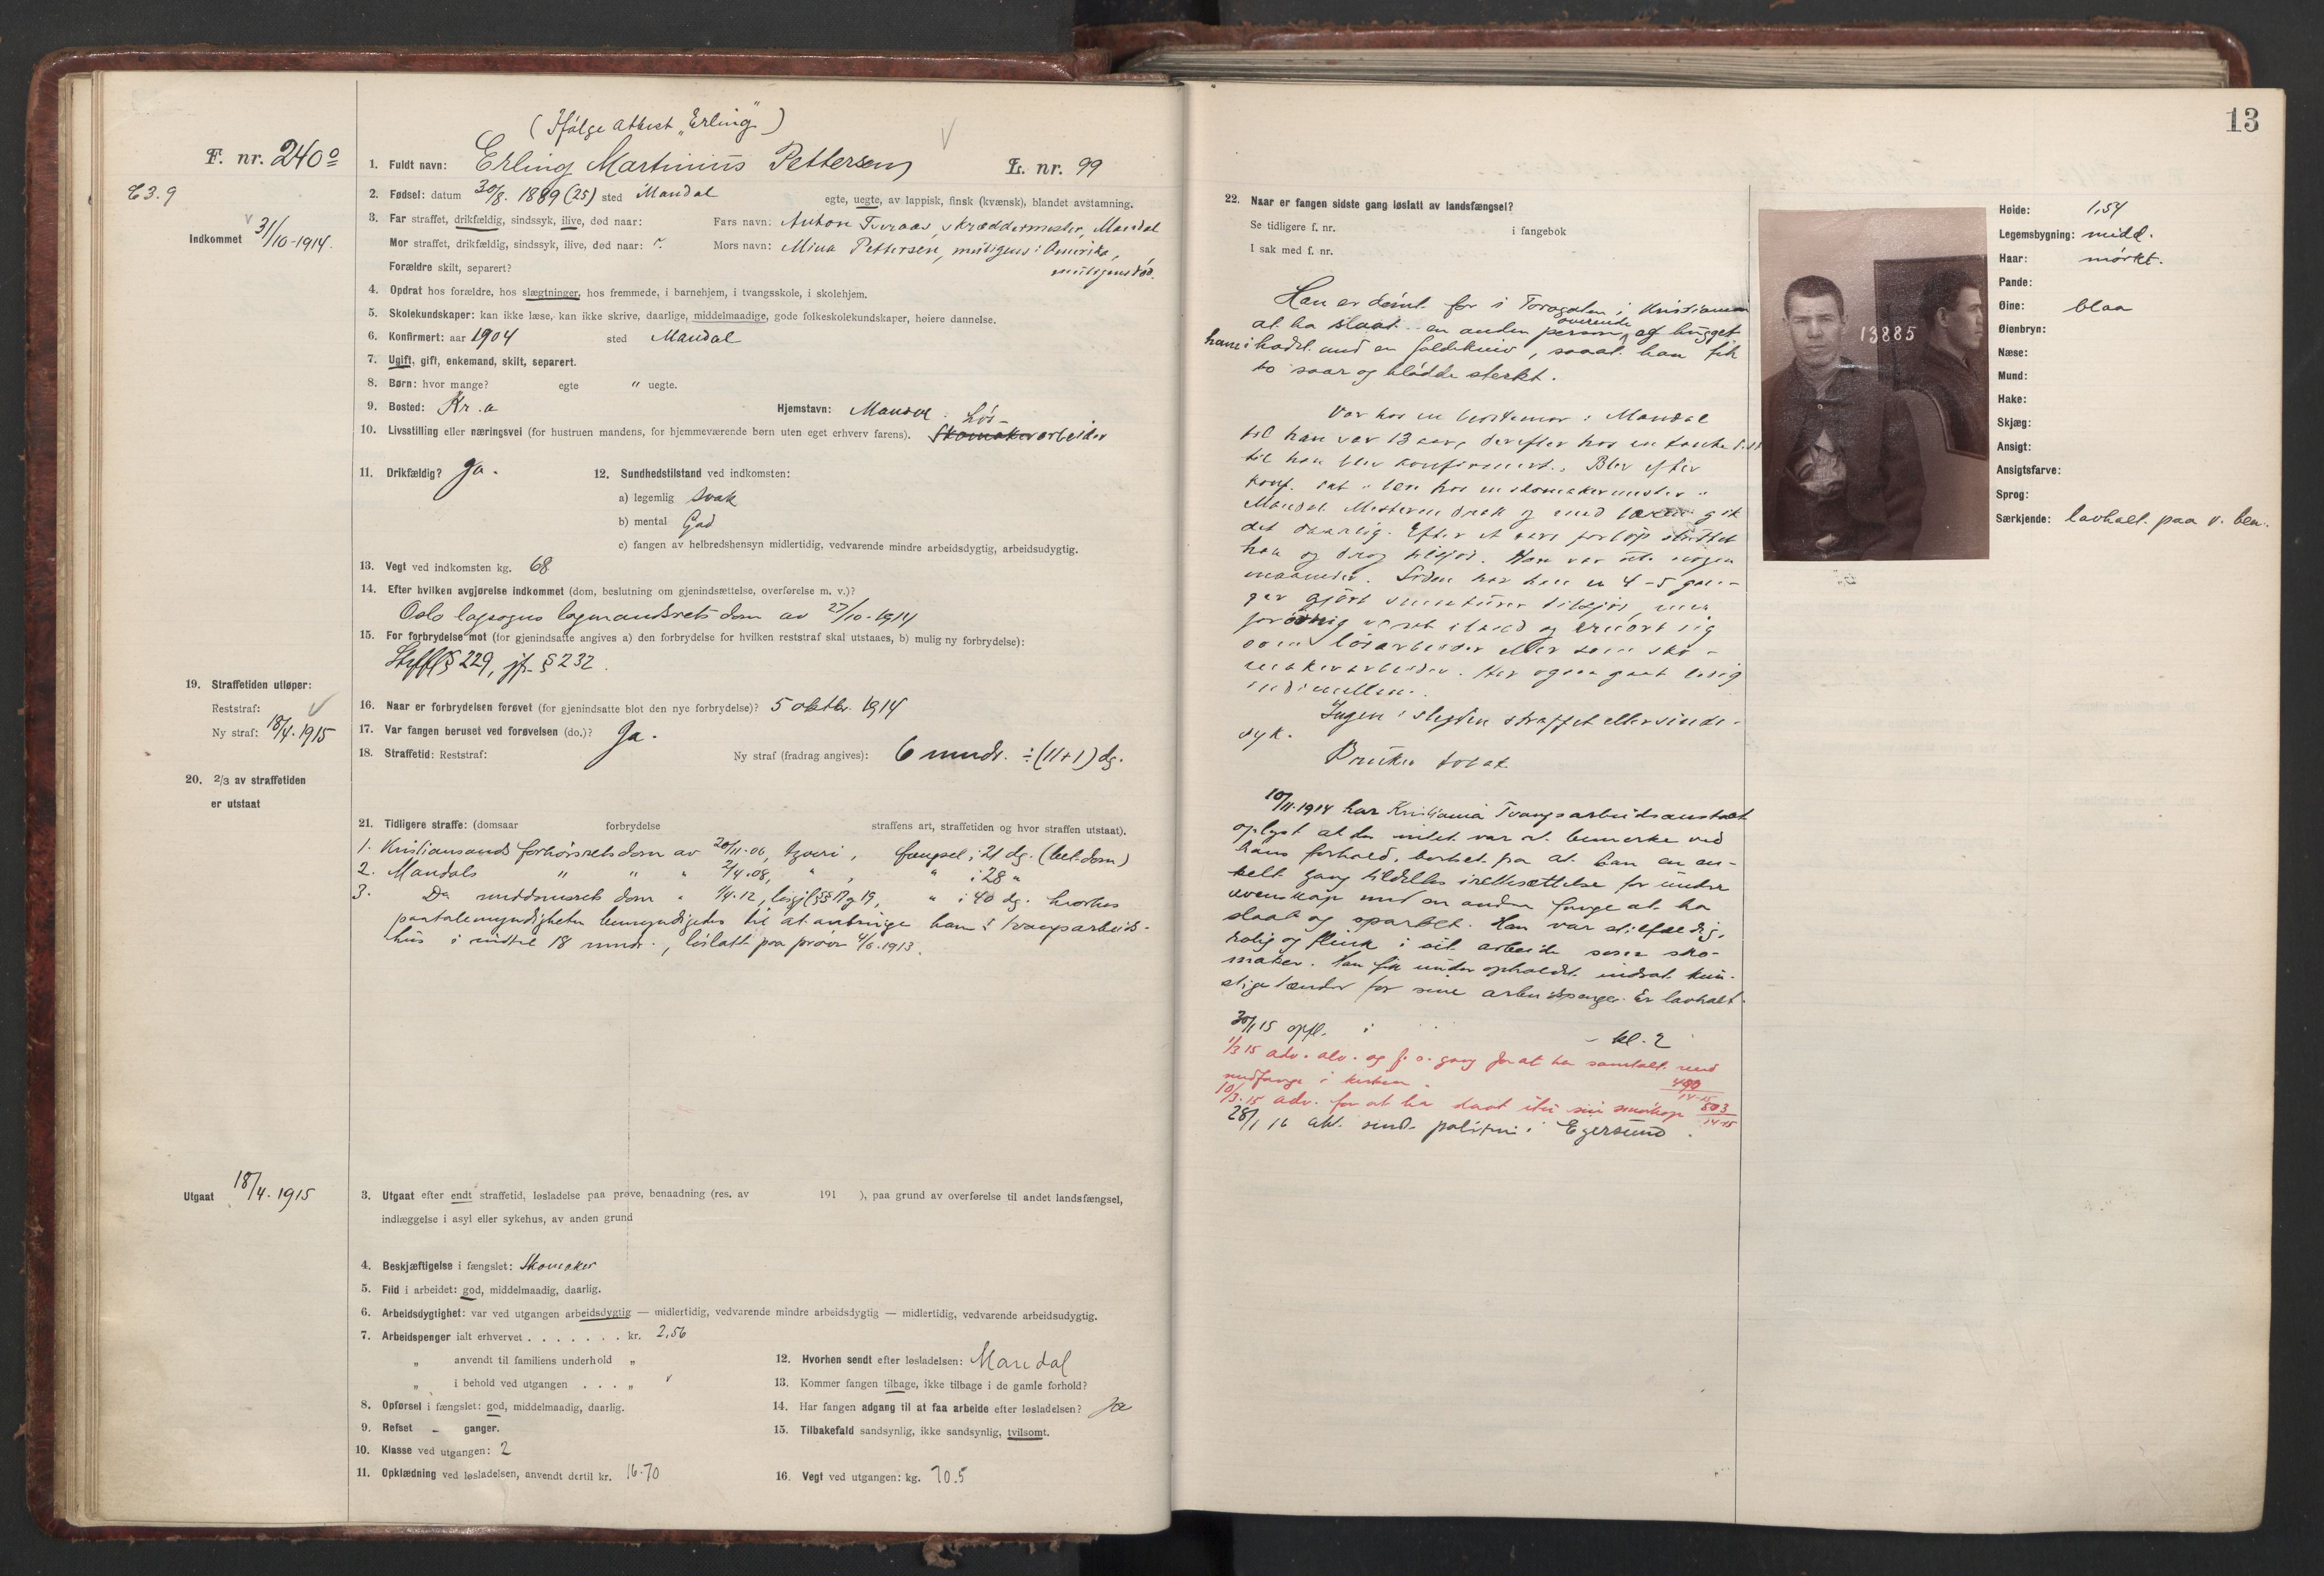 (Ifølge attest „Erling")
F. nr. 240º
1. Fuldt navn: Erling Martinius Pettersen L. nr. 99
E 3.9
2. Fødsel: datum 30/8. 1889 (25) sted Mandal egte, uegte, av lappisk, finsk (kvænsk), blandet avstamning.
Indkommet 31/10-1914.
3. Far straffet, drikfældig, sindssyk, ilive, død naar: Fars navn: Anton Tveraas, skræddermester, Mandal
Mor straffet, drikfældig, sindssyk, ilive, død naar: ?. Mors navn: Mina Pettersen, muligens i Amerika,
Forældre skilt, separert? muligens død.
4. Opdrat hos forældre, hos slægtninger, hos fremmede, i barnehjem, i tvangsskole, i skolehjem.
5. Skolekundskaper: kan ikke læse, kan ikke skrive, daarlige, middelmaadige, gode folkeskolekundskaper, høiere dannelse.
6. Konfirmert: aar 1904 sted Mandal
7. Ugift, gift, enkemand, skilt, separert.
8. Børn: hvor mange? egte " uegte.
9. Bosted: Kr.a Hjemstavn: Mandal
Løs-
10. Livsstilling eller næringsvei (for hustruen mandens, for hjemmeværende børn uten eget erhverv farens). Skomakerarbeider
11. Drikfældig? Ja. 12. Sundhedstilstand ved indkomsten:
a) legemlig svak
b) mental God
c) fangen av helbredshensyn midlertidig, vedvarende mindre arbeidsdygtig, arbeidsudygtig.
13. Vegt ved indkomsten kg. 68
14. Efter hvilken avgjørelse indkommet (dom, beslutning om gjenindsættelse, overførelse m. v.)?
Oslo lagsogns lagmandsrets dom av 27/10-1914
15. For forbrydelse mot (for gjenindsatte angives a) den forbrydelse for hvilken reststraf skal utstaaes, b) mulig ny forbrydelse):
Strfl § 229, jf. § 232.
19. Straffetiden utløper:
Reststraf:
16. Naar er forbrydelsen forøvet (for gjenindsatte blot den nye forbrydelse)? 5 oktbr. 1914
Ny straf: 18/4.1915
17. Var fangen beruset ved forøvelsen (do.)? Ja.
18. Straffetid: Reststraf: Ny straf (fradrag angives): 6 mndr. ÷ (11+1) dg.
20. 2/3 av straffetiden
er utstaat
21. Tidligere straffe: (domsaar forbrydelse straffens art, straffetiden og hvor straffen utstaat).
1. Kristiansands forhørsrets dom av 20/11-06, tyveri, fængsel i 21 dg. (bet. dom)
2. Mandals " " " 2/4.08, " , " i 28 "
3. Do meddomsrets dom " 1/4.12, løsgjl §§ 17 og 19, " i 40 dg. hvorhos
paatalemyndigheten bemyndigedes til at anbringe ham i tvangsarbeids-
hus i indtil 18 mndr., løslatt paa prøve 4/6.1913.
Utgaat 18/4.1915
3. Utgaat efter endt straffetid, løsladelse paa prøve, benaadning (res. av 191 ), paa grund av overførelse til andet landsfængsel,
indlæggelse i asyl eller sykehus, av anden grund
4. Beskjæftigelse i fængslet: Skomaker
5. Flid i arbeidet: god, middelmaadig, daarlig.
6. Arbeidsdygtighet: var ved utgangen arbeidsdygtig — midlertidig, vedvarende mindre arbeidsdygtig — midlertidig, vedvarende arbeidsudygtig.
7. Arbeidspenger ialt erhvervet . . . . . . . kr. 2,56
„ anvendt til familiens underhold „
„ i behold ved utgangen . . . „
8. Opførsel i fængslet: god, middelmaadig, daarlig.
9. Refset - ganger.
10. Klasse ved utgangen: 2
11. Opklædning ved løsladelsen, anvendt dertil kr. 16.70
12. Hvorhen sendt efter løsladelsen: Mandal
13. Kommer fangen tilbage, ikke tilbage i de gamle forhold?
14. Har fangen adgang til at faa arbeide efter løsladelsen? Ja
15. Tilbakefald sandsynlig, ikke sandsynlig, tvilsomt.
16. Vegt ved utgangen: kg. 70.5
13
22. Naar er fangen sidste gang løslatt av landsfængsel?
Se tidligere f. nr. i fangebok
I sak med f. nr.
Han er dømt for i Torvgaten i Kristiania
at ha slaat en anden person overende og hugget
ham i hodet med en foldekniv, saaat han fik
to saar og blødde sterkt.
Var hos en bestemor i Mandal
til han var 13 aar, derefter hos en tante
til han blev konfirmert. Blev efter
konf. sat i lære hos en skomakermester i
Mandal. Mesteren drak og med læren gik
det daarlig. Efter et aars forløp sluttet
han og drog tilsjøs. Han var ute nogen
maaneder. Siden har han en 4-5 gan-
ger gjort smaaturer tilsjøs, men
forøvrig været iland og ernært sig
som løsarbeider eller som sko-
makerarbeider. Har ogsaa gaat ledig
indimellem.
Ingen i slegten straffet eller sinds-
syk.
Bruker tobak.
10/11.1914 har Kristiania Tvangsarbeidsanstalt
oplyst at der intet var at bemerke ved
hans forhold, bortset fra at han en en-
kelt gang tildeltes irettesættelse for under
uvenskap med en anden fange at ha
slaat og sparket. Han var stilfærdig,
rolig og flink i sit arbeide som sko-
maker. Han fik under opholdet indsat kun-
stige tænder for sine arbeidspenger. Er lavhalt.
30/1 15 opfl. i - kl. 2
1/3 15 adv. alv. og f. o. gang for at ha samtalt med
medfange i kirken. 490/14-15
10/3.15 adv. for at ha slaat itu sin 503/14-15
28/1 16 akt. sendt politiet i Egersund.
13885
Høide: 1,54
Legemsbygning: midd.
Haar: mørkt.
Pande:
Øine: blaa
Øienbryn:
Næse:
Mund:
Hake:
Skjæg:
Ansigt:
Ansigtsfarve:
Sprog:
Særkjende: lavhalt paa v. ben.